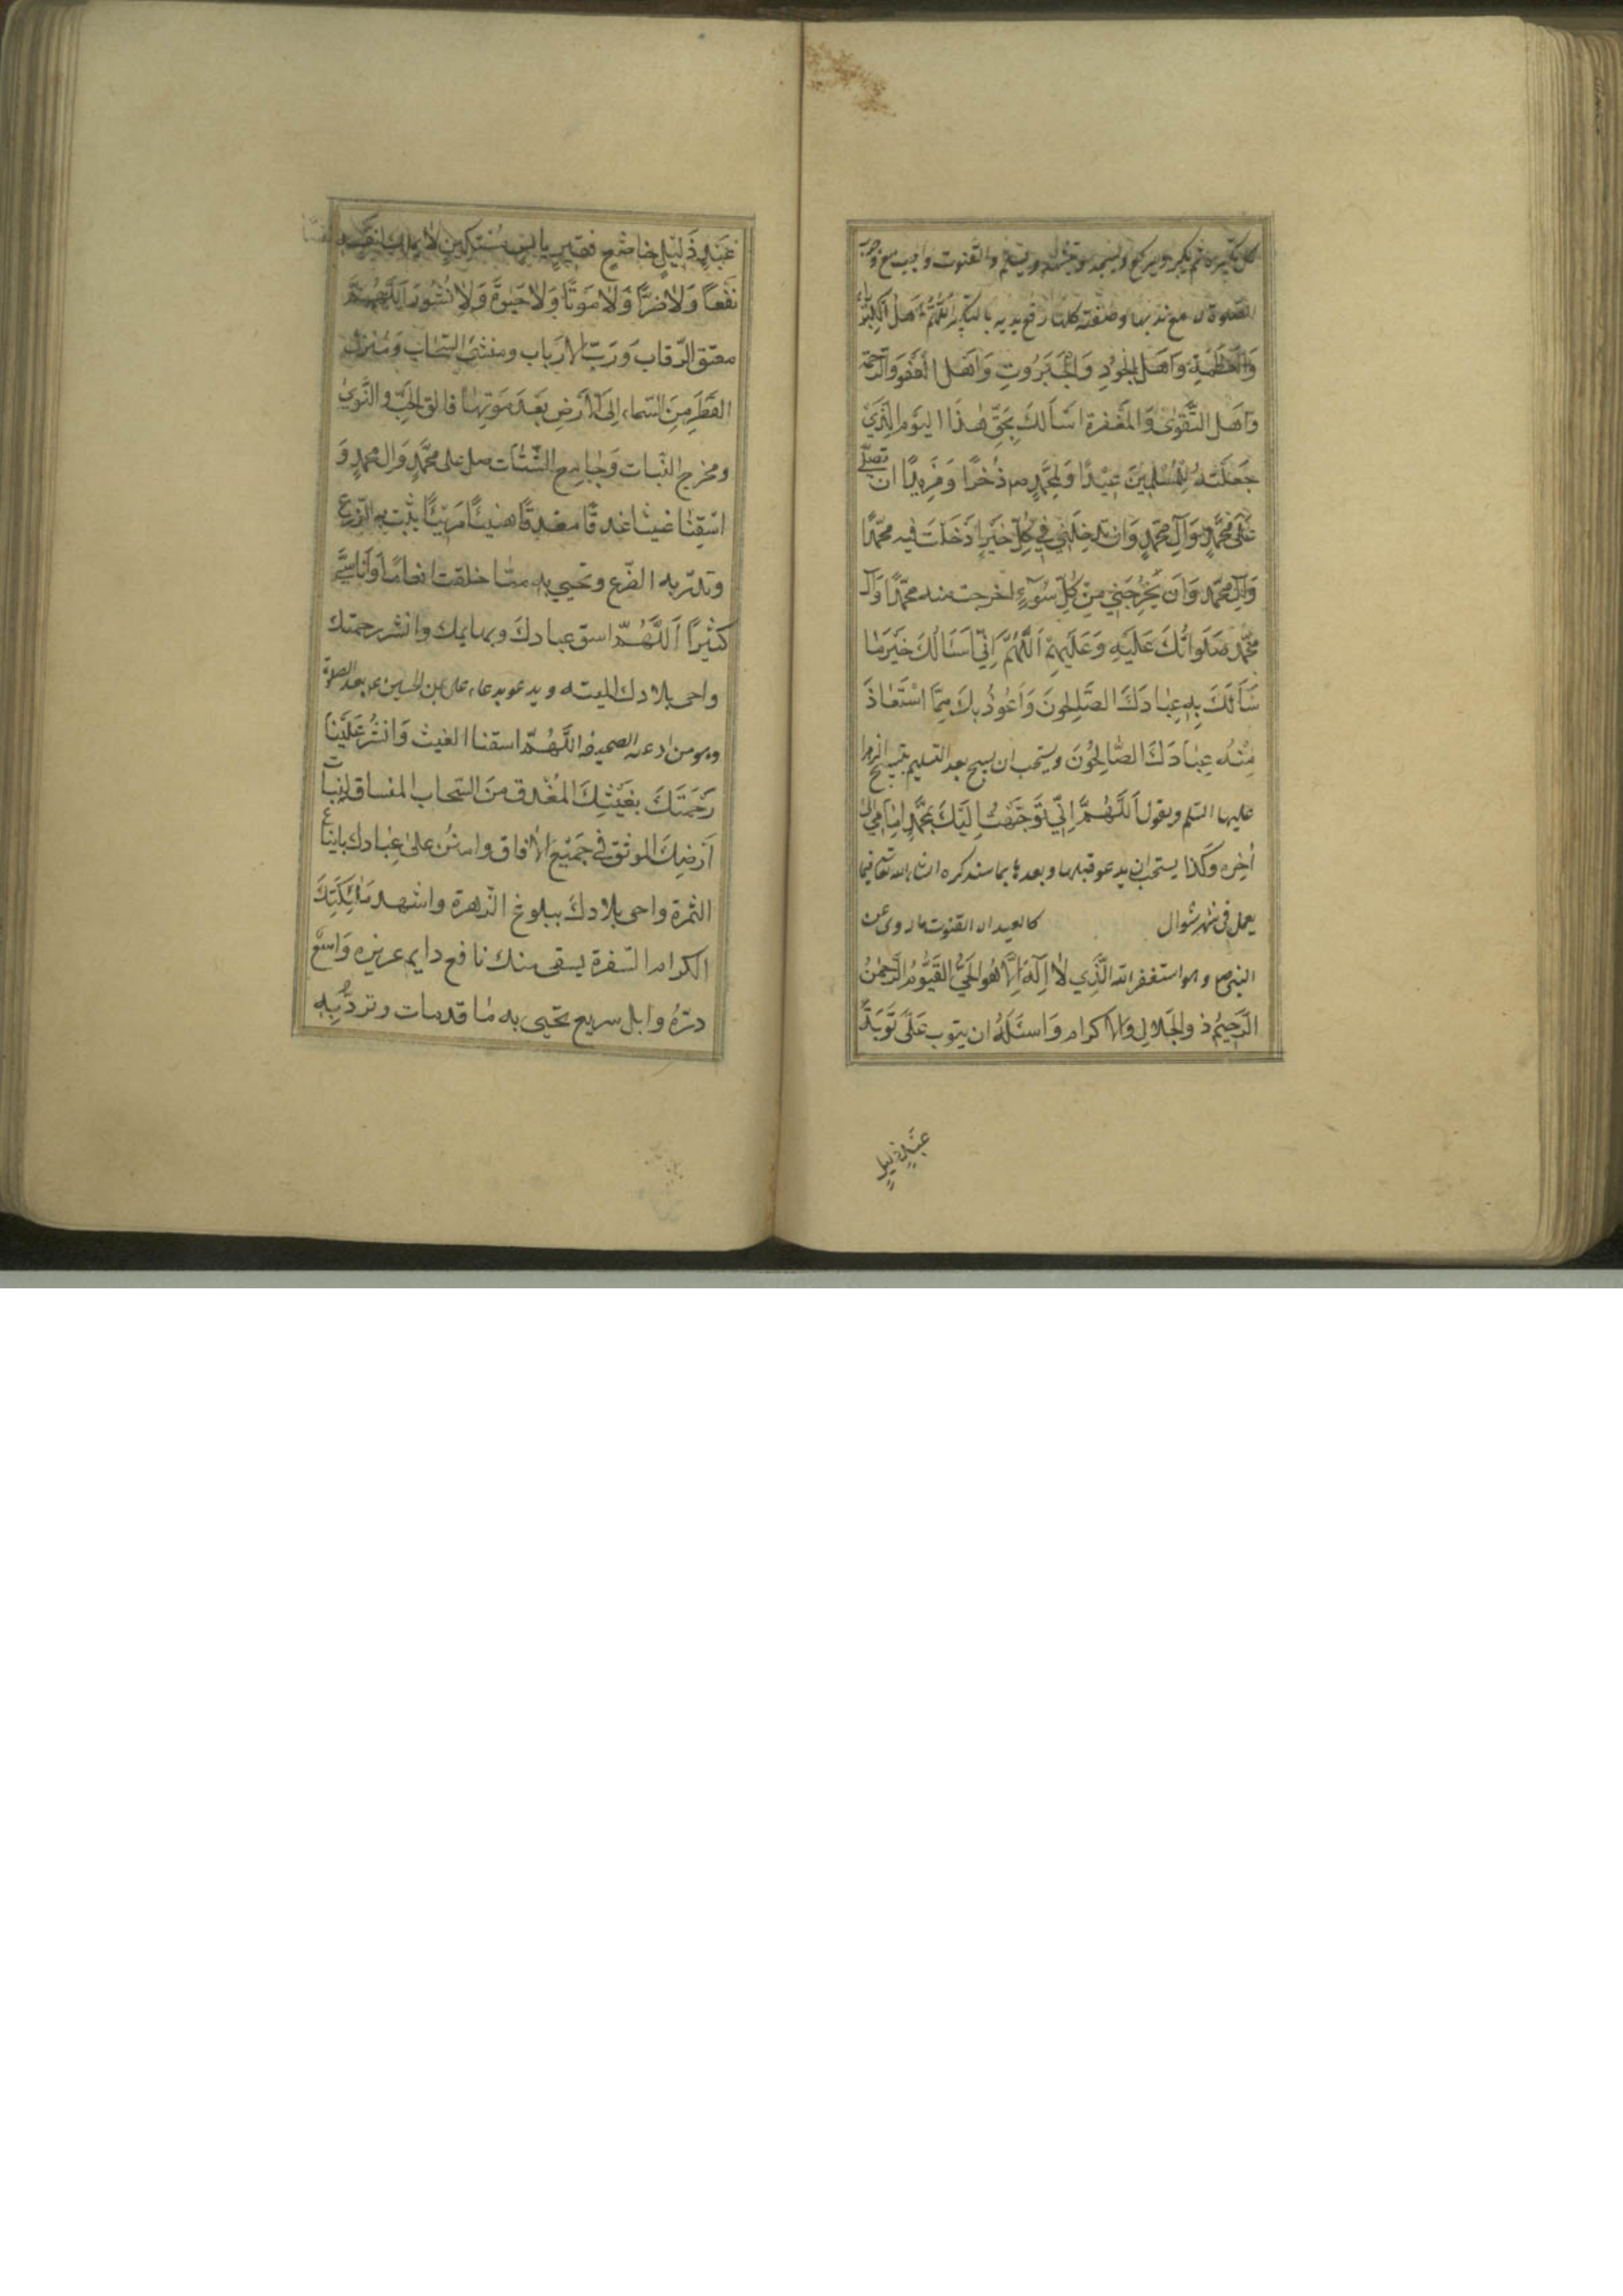 كل تكبيرة ثم يكبر ويركع ويسجد ويتشهد ويسلم والقنوت واجب مع وجوب
الصلوة مع ندبها وصفته كلما رفع يديه بالتكبير اَللّهُمَّ اَهلَ الكِبْرِياءِ
وَالعَظَمَةِ وَاَهلَ الجُودِ وَالجَبَرُوتِ وَاَهلَ العَفوِ وَالرَّحمَةِ
وَاَهلَ التَّقوىٰ وَالمَغفِرة اَسْاَلُكَ بِحَقِّ هٰذَا اليَومِ الَّذي
جَعَلتَهُ لِلمُسْلِمينَ عِيْدًا وَلِمُحَمَّدٍ ص ذُخرًا وَمَزِيدًا ان تصلّي
عَلىٰ مُحَمَّدٍ وَآلِ مُحَمَّدٍ وَان تدخِلَني في كُلِّ خَيرٍ اَدخَلتَ فيه محمّدًا
وَآلَ محمّد وَاَن تُخرِجَني مِن كُلِّ سُوٓءٍ اخرجت منه محمّدًا وَآلَ
محمّد صَلَواتُكَ عَلَيهِ وَعَلَيهِمْ اَللّهُمَّ اِنّي اَسْاَلُكَ خَيرَ مٰا
سَاَلَكَ بِهِ عِبٰادُكَ الصّٰلِحُونَ وَاَعُوذُ بِكَ مِمَّا اسْتَعٰاذَ
مِنْهُ عِبٰادُكَ الصّٰالِحُونَ ويستحب ان يسبح بعد التسليم بتسبيح الزهرا
عليها السّلم ويقول اَللّهُمَّ اِنّي تَوَجَّهتُ اِلَيكَ بِمُحَمَّدٍ اَمٰامي الى
اٰخِره وكذا يستحب ان يدعو قبلها وبعدها بما سنذكره ان شاء الله تعالى فيما
يعمل في شهر شوال كالعيد ان القنوت ما روى عن
النبي ص وهو استغفر الله الَّذي لاٰ اِلٰهَ اِلّٰا هُوَ الحَيُّ القَيُّومُ الرَّحمٰنُ
الرَّحِيمُ ذو الجَلالِ وَالاكرام وَاسئَلُهُ ان يتوب عَلَىَّ تَوبَةَ
عَبْدٍ ذَليلٍ
عَبْدٍ ذَليْلٍ خاضِعٍ فَقيرٍ بائِسٍ مُسْتَكينٍ لا يملك لنفسه
نَفْعاً وَلاٰ ضَرًّا وَلاٰ مَوتًا وَلاٰ حَيٰوةً وَلاٰ نُشُورًا اَللّهُمَّ
معتق الرّقاب وَرَبّ الاَرباب ومنشئ السّحاب وَمُنزل
القَطْرِ مِنَ السّماء اِلَى الاَرضِ بَعْدَ مَوتِهٰا فالق الحَبّ والنَّوىٰ
ومخرج النّبات وَجٰامِع الشّتات صل على محمَّدٍ وَال محمدٍ وَ
اسْقِنٰا غيثا غدقًا مغدقًا هنيئًا مَريئًا ينبت به الزّرع
وتدرّ به الضّرع وتحيي به ممّا خلقت انعامًا وَاَناسيَّ
كَثيرًا اَللّهُمَّ اسق عبادكَ وبهايمك وانشر رحمتك
واحي بلادك الميته ويدعو بدعاء علي بن الحسين ع بعد الصلوة
وهو من ادعية الصحيفة اللّهُمّ اسقنا الغيث وَانشُر عَلَيْنٰا
رَحْمَتَكَ بِغَيْثِكَ المُغْدِق مِنَ السّحاب المنساق لنبات
اَرْضِكَ المونق في جَميْعِ الاٰفاق وامنُن علىٰ عِبٰادك باينٰاع
الثمرة واحي بلادكَ ببلوغ الزّهرة واشهد مَلٰئِكَتَكَ
الكرام السّفرة بسقى منك نافع دايم غزيره وَاسِع
درّهُ وابل سريع تحيى به مٰا قد مات وتردّ بِه